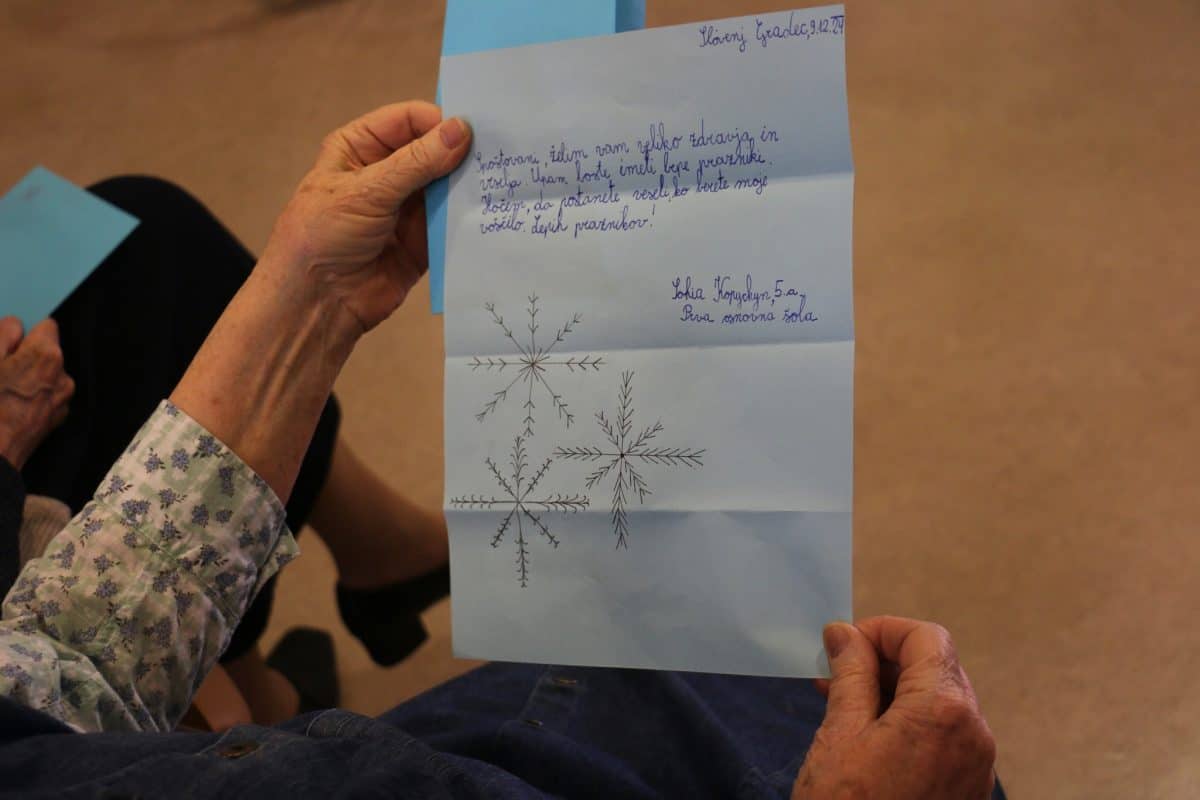 Slovenj Gradec, 9.12.24
Spoštovani, želim vam veliko zdravja in
veselja. Upam, boste imeli lepe praznike.
Hočem, da postanete veseli, ko berete moje
voščilo. Lepih praznikov!
Sofia Kopychyn, 5.a
Prva osnovna šola